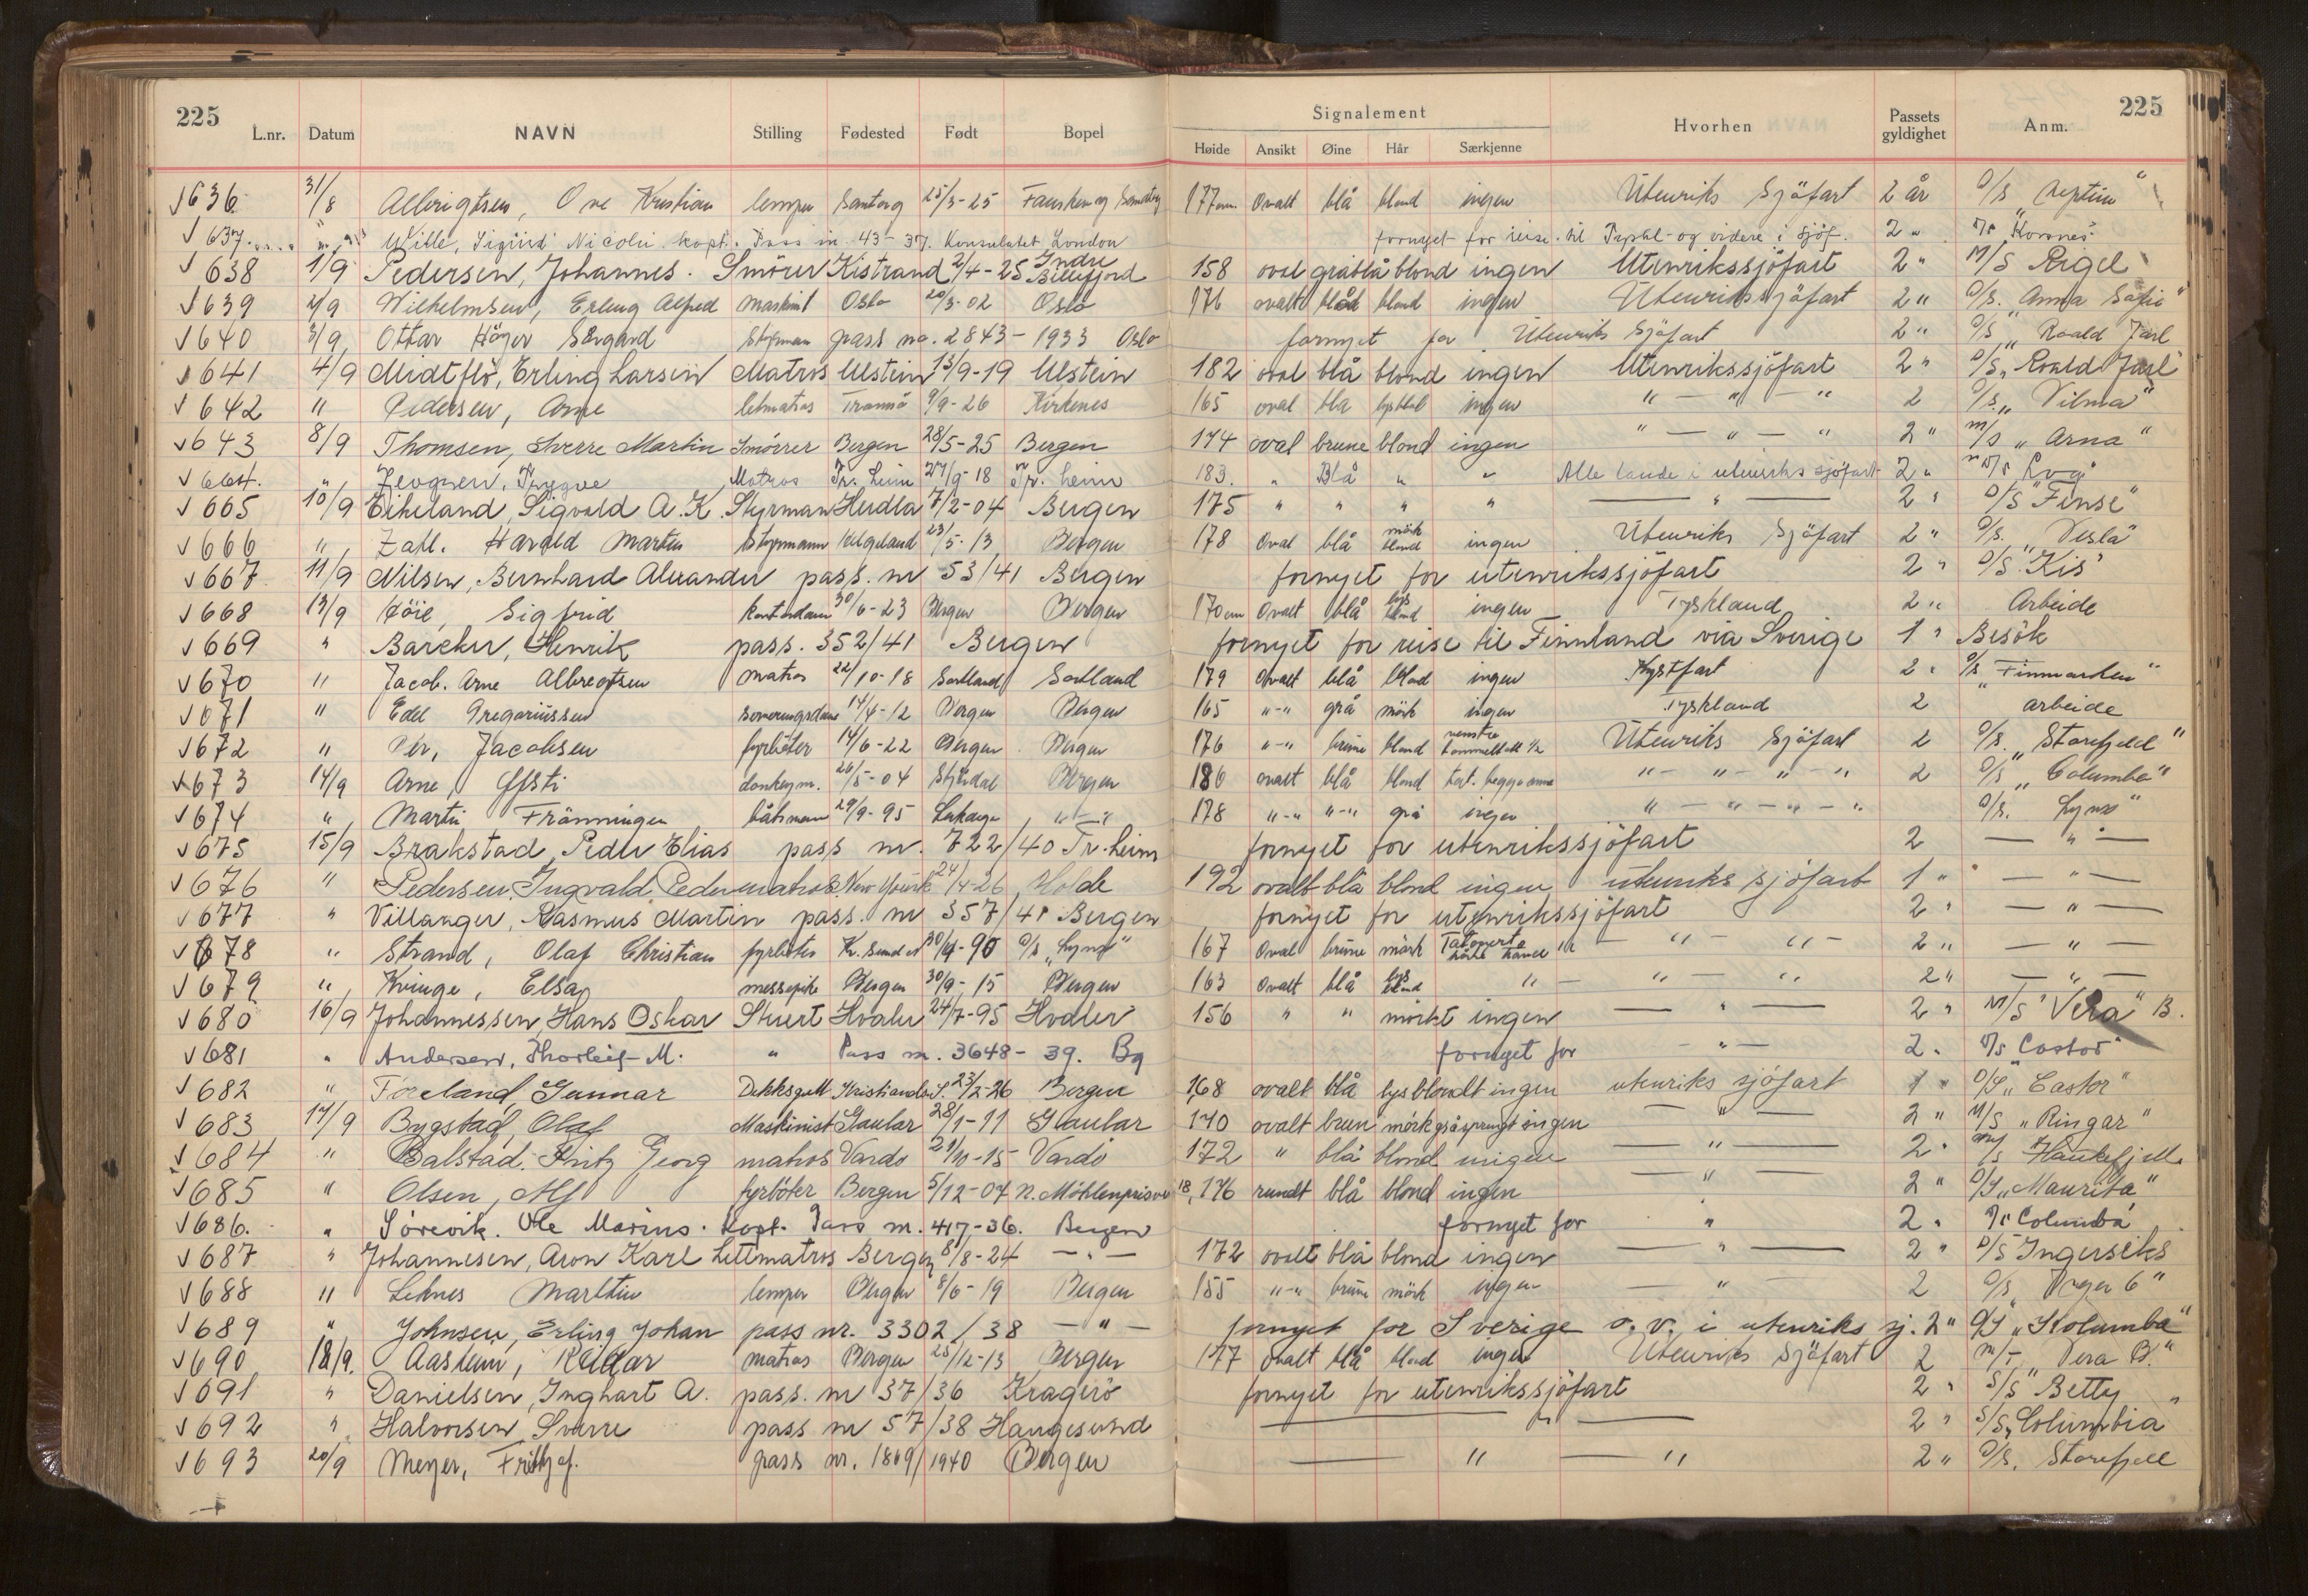 225 225
L.nr. Datum NAVN Stilling Fødested Født Bopel Signalement Hvorhen Passets gyldighet Anm.
Høide Ansikt Øine Hår Særkjenne
636 31/8 Ove Kristian lemper 25/3-25 Fauske og 177 cm. Ovalt blå blond ingen Utenriks Sjöfart 2 år D/S „Neptun“
637 " Wille, Sigurd Nicolai kapt. Pass nr. 43-37. Konsulatet London fornyet for reise til og videre i sjöf. 2 " D/S „Korsnes“
638 1/9 Pedersen, Johannes. Smörer Kistrand 2/4-25 Indre Billefjord 158 oval gråblå blond ingen Utenrikssjöfart 2 " M/S Rigel
639 2/9 Wilhelmsen, Erling Alfred maskinist Oslo 20/3-02 Oslo 176 ovalt blå blond ingen Utenrikssjöfart 2 " D/S. „Anna Sofie“
640 3/9 Ottar Höyer Sörgård Styrmann pass no. 2843-1933 Oslo fornyet for Utenriks Sjöfart 2 " D/S „Roald Jarl
641 4/9 Midtflö, Erling Larsen Matros Ulstein 13/9-19 Ulstein 182 oval blå blond ingen Utenrikssjöfart 2 " D/S „Roald Jarl“
642 " Pedersen, Arne letmatros Tromsö 9/9-26 Kirkenes 165 oval blå ingen " — " — " 2 D/S. „Vilma“
643 8/9 Thomsen, Sverre Martin Smörrer Bergen 28/5-25 Bergen 174 oval brune blond ingen " — " — " 2 " M/S „Arna“
664. " Trygve Matros Tr. heim 27/9-18 Tr. heim 183. " Blå " " Alle lande i utenriks sjöfart 2 "
665 10/9 Eikeland, Sigvald A. K. Styrman Herdla 7/2-04 Bergen 175 " " " " — " — 2 " D/S "Finse"
666 " Zahl. Harald Martin Styrmann Helgeland 23/5-13 Bergen 178 Oval blå mörk blond ingen Utenriks Sjöfart 2 " D/S. „Vesla“
667 11/9 Nilsen, Bernhard Alexander pass. nr 53/41 Bergen fornyet for utenrikssjöfart 2 " D/S "Kis"
668 13/9 Sigfrid kontordame 30/6-23 Bergen Bergen 170 cm Ovalt blå lys blond ingen Tyskland 2 " Arbeide
669 " Henrik pass. 352/41 Bergen fornyet for reise til Finnland via Sverige 1 " Besök
670 " Jacob. Arne Albregtsen matros 22/10-18 Sortland Sortland 179 Ovalt blå blond ingen Kystfart 2 " D/S „Finmarken“
671 " Edel Gregoriussen serveringsdame 14/4-12 Bergen Bergen 165 "-" grå mörk ingen Tyskland 2 arbeide
672 " Per, Jacobsen fyrböter 14/6-22 Bergen Bergen 176 "-" brune blond venstre 1/2 Utenriks Sjöfart 2 D/S. „Storefjeld“
673 14/9 Arne, donkeym. 26/5-04 Stjördal Bergen 180 ovalt blå blond tat. begge arme " — " — " — " 2 D/S „Columba“
674 " Martin Frönningen båtsmann 29/9-95 "-" 178 "-" "-" grå ingen " — " — " — " D/S. „Lynx“
675 15/9 Brakstad, Peder Elias pass nr. 722/40 Tr. heim fornyet for utenrikssjöfart 2 — " —
676 " Pedersen, Ingvald Peder matros New York 24/4-26 Molde 192 ovalt blå blond ingen utenriks sjöfart 1 " — " —
677 " Villanger, Rasmus Martin pass. nr 357/41 Bergen fornyet for utenrikssjöfart 2 " — " —
678 " Strand, Olaf Christian fyrböter Kr. Sund N 30/9-90 D/S „Lynx“ 167 Oval brune mörk — " — " — 2 " — " —
679 " Kringe, Elsa messepike Bergen 30/9-15 Bergen 163 Ovalt blå lys blond " — " — " 2 " — " —
680 16/9 Johannessen, Hans Oskar Stuert Hvaler 24/7-95 Hvaler 156 " " mörkt ingen — " — 2 " M/S "Vera" B.
681 " Andersen, Thorleif M. " Pass nr. 3648-39. Bg fornyet for — " — 2 " D/S „Castor“
682 " Föreland, Gunnar Dekksgutt Kristiansand S. 23/2-26 Bergen 168 ovalt blå lysblondt ingen utenriks sjöfart 1 " D/S „Castor“
683 17/9 Bygstad, Olaf Maskinist Gaular 28/1-11 Gaular 170 ovalt brun mörk gråsprengt ingen — " — 2 " M/S „Ringar“
684 " Balstad, Fritz Georg matros Vardö 29/10-15 Vardö 172 " blå blond ingen — " — 2 " M/S Haukefjell
685 " Olsen, Alf fyrböter Bergen 5/12-07 N. Möhlenprisvei 18, 176 rundt blå blond ingen " 2 " D/S „Maurita“
686. " Sörevik. Ole Marius. kapt. Pass nr. 417-36. Bergen fornyet for " 2 " D/S Columba
687 " Johannesen, Aron Karl Lettmatros Bergen 8/8-24 — " — 172 ovalt blå blond ingen — " — 2 " D/S Ingerseks
688 " Leknes Marthin lemper Bergen 8/6-19 Bergen 155 "-" brune mörk ingen — " — 2 D/S „Inger 6“
689 " Johnsen, Erling Johan pass nr. 3302/38 — " — fornyet for Sverige o. v. i utenriks sj. 2 " D/S „Kolumba“
690 18/9. Aasheim, Reidar matros Bergen 25/12-13 Bergen 177 ovalt blå blond ingen Utenriks Sjöfart 2 M/T „Vera B.“
691 " Danielsen, Inghart A. pass. nr 37/36 Kragerö fornyet for utenrikssjöfart 2 " S/S "Betty"
692 " Halvorsen, Sverre pass nr 57/38 Haugesund — " — 2 " S/S „Columbia“
693 20/9 Meyer, Frithjof. pass nr. 1809/1940 Bergen — " — " 2 " D/S. Storefjell